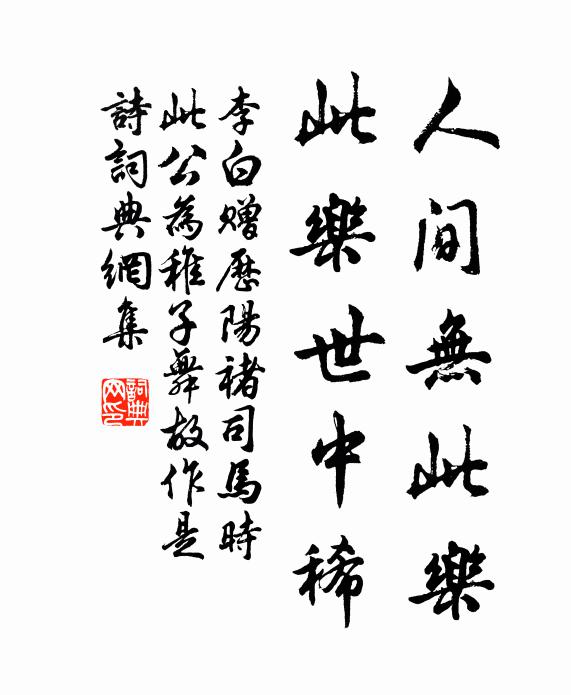 人間無此樂
此樂世中稀
李白贈歷陽褚司馬時
此公為稚子舞故作是
詩詞典網集
詞典網印